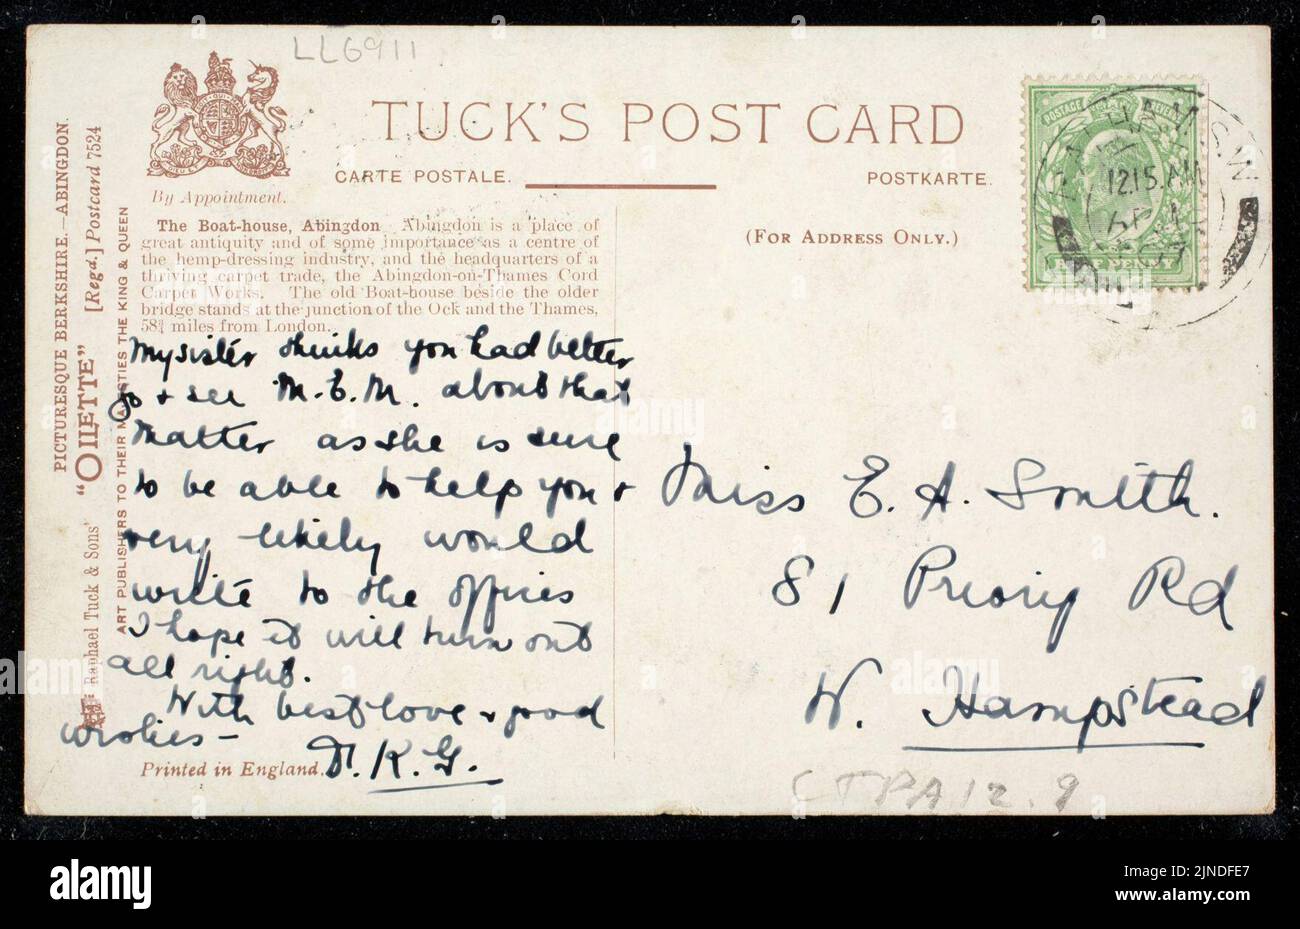 LL6911
TUCK'S POST CARD
CARTE POSTALE.
POSTKARTE.
By Appointment.
(FOR ADDRESS ONLY.)
The Boat-house, Abingdon Abingdon is a place of
great antiquity and of some importance as a centre of
the hemp-dressing industry, and the headquarters of a
thriving carpet trade, the Abingdon-on-Thames Cord
Carpet Works. The old Boat-house beside the older
bridge stands at the junction of the Ock and the Thames,
58¾ miles from London.
My sister thinks you had better
go & see M.E.M. about that
matter as she is sure
to be able to help you &
very likely would
write to the offices
I hope it will turn out
all right.
With best love & good
wishes –
D.K.G.
Printed in England.
PICTURESQUE BERKSHIRE.—ABINGDON.
"OILETTE" [Regd.] Postcard 7524
Raphael Tuck & Sons'
ART PUBLISHERS TO THEIR MAJESTIES THE KING & QUEEN
POSTAGE
12.15 AM
AP
07
Miss E. A. Smith.
81 Priory Rd
W. Hampstead
CTPA12.9
alamy
alamy
Image ID: 2JNDFE7
www.alamy.com